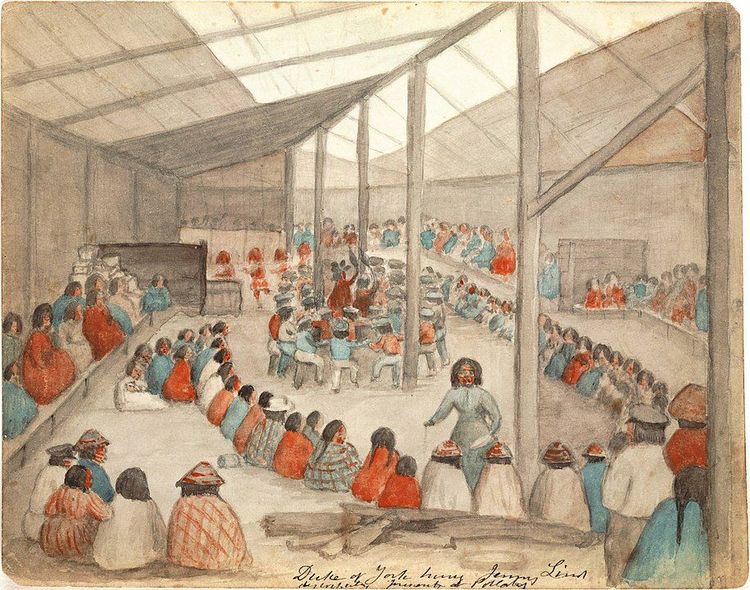 Duke of York Jenny Lind
distributing presents at Potlatch